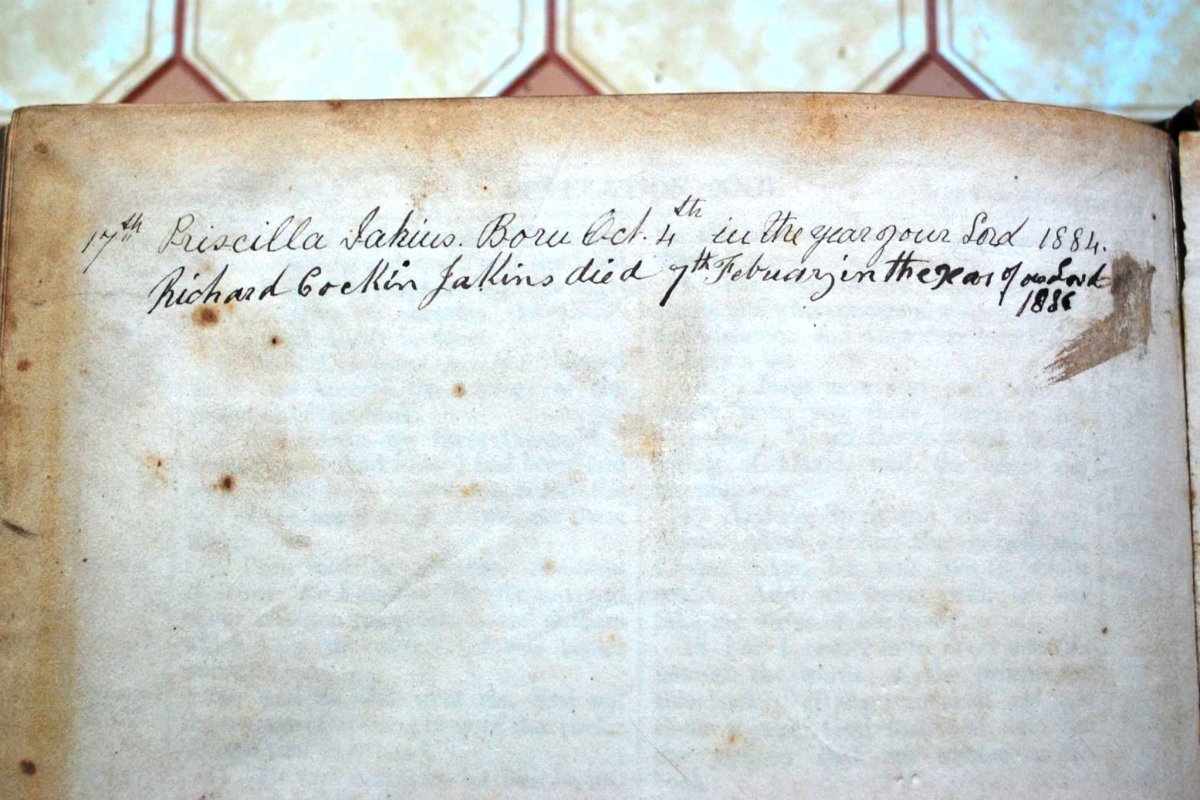 17th Priscilla Jakins. Born Oct. 4th in the year of our Lord 1884.
Richard Cockin Jakins died 7th Febuary in the year of our Lord